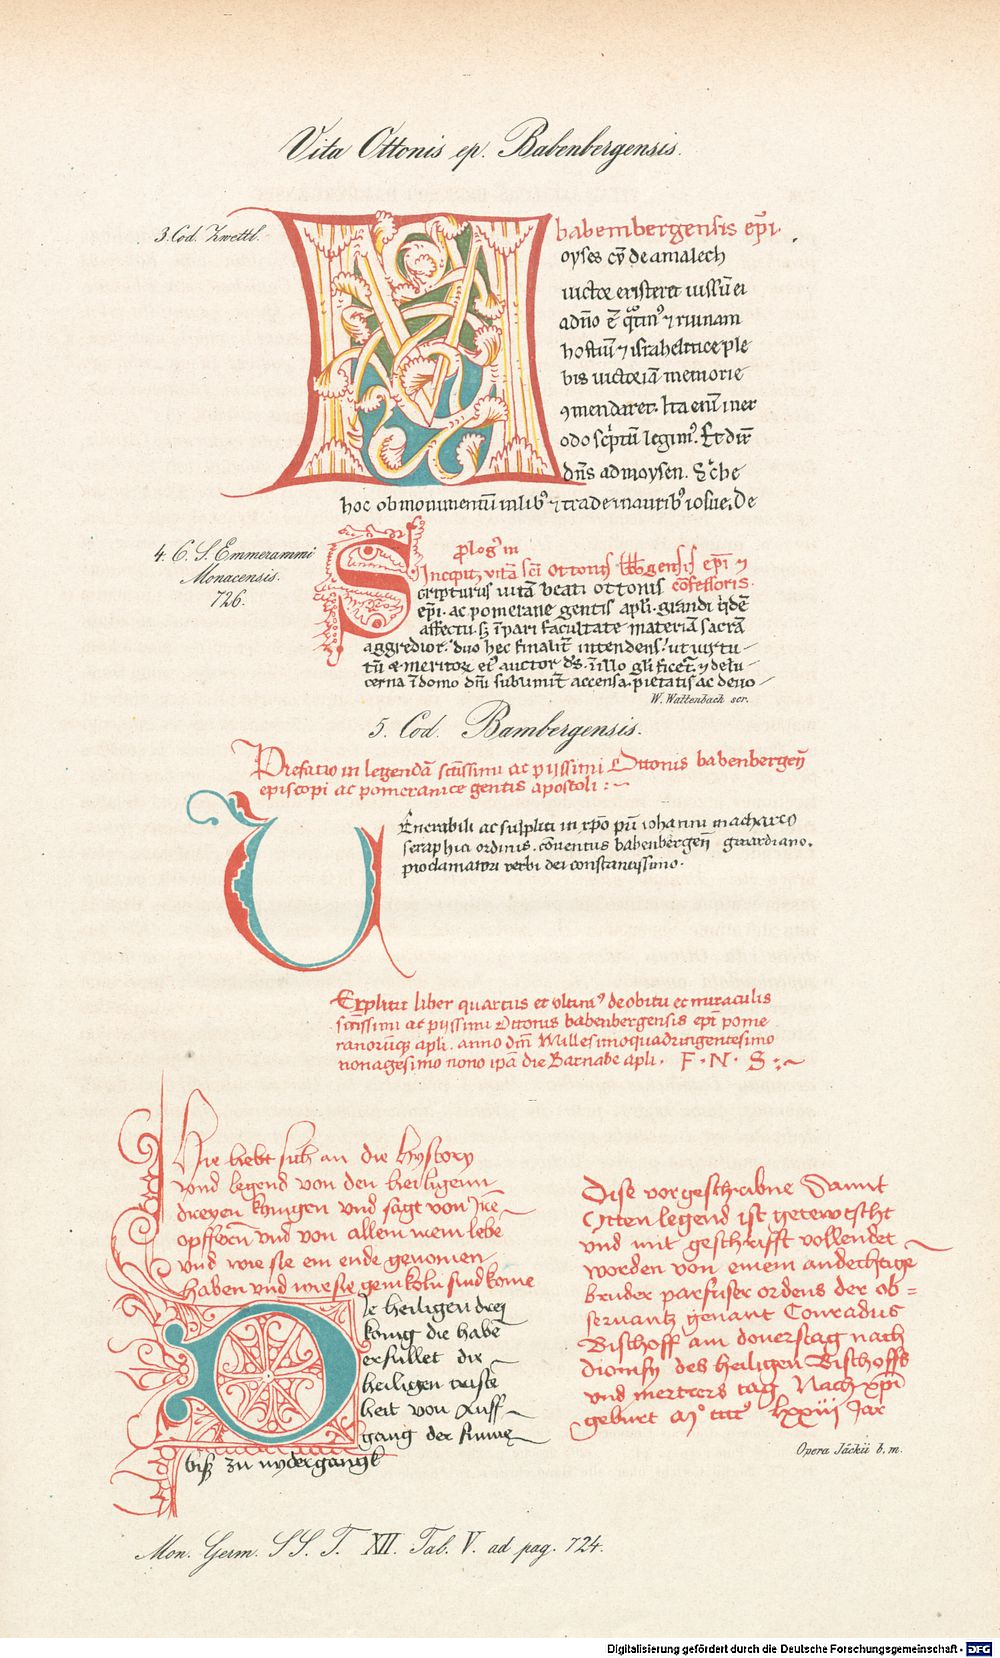 Vita Ottonis ep. Babenbergensis.
3. Cod. Zwettl.
babembergensis ep̄i.
oyses cū de amalech
uictor existeret iussū ei
a dn̄o ē
hostiū ⁊ israhelitice ple
bis uictoriā memorie
ꝯmendaret. Ita enī in er
odo sc̓ptū legim᷒. Et dix̄
dn̄s ad moysen. Sc̓be
hoc ob monumentū in lib᷒ ⁊ trade in aurib᷒ iosue. De
4. C. S. Emmerammi
Monacensis.
726.
Plog᷒ in
Incipit vitā sc̄i Ottonis ep̄i ⁊
cripturus uitā beati ottonis cōfessoris.
ep̄i. ac pomeranie gentis apl̄i. grandi q̇dē
affectu. sꝫ īpari facultate materiā sacrā
aggredior. duo hec finalit̄ intendens. ut uirtu-
tū ⁊ meritoꝝ ei᷒ auctor d̄s. ī illo gl̄ificet᷑. ⁊ de lu-
cerna ī domo dn̄i subumit᷑ accensa. pietatis ac deuo-
W. Wattenbach scr.
5. Cod. Bambergensis.
Prefatio in legendā sctīssimi ac pijssimi Ottonis babenbergeñ
episcopi ac pomeranice gentis apostoli :~
Uenerabili ac suspliti in xp̄o pr̄i iohanni macharco
seraphici ordinis. cōuentus babenbergeñ gwardiano.
proclamatori verbi dei constantissimo.
Explicit liber quartus et vltim᷒ de obitu et miraculis
sctīssimi ac pijssimi Ottonis babenbergensis ep̄i pome
ranorūqꝫ apl̄i. anno dn̄i Millesimoquadringentesimo
nonagesimo nono ip̄a die Barnabe apl̄i. F. N. S :~
Hie hebt sich an die hystory
vnd legend von den heiligenn
dreyen kunigen vnd sagt von irē
opffern vnd von allem irem lebē
vnd wie sie ein ende genomen
haben vnd wie sie gein koln sind kome
Die heiligen drey
konig die habē
erfullet die
heiligen criste
heit von Auff-
gang der sunnē
biß zu nydergangk
Dise vorgeschribne Sannt
Otten legend ist getewtscht
vnd mit geschrifft vollendet
worden von einem andechtige
bruder parfuser ordens der ob=
seruantz genant Conradus
Bischoff am donerstag nach
dionisy des heiligen Bischoffs
vnd mertrers tag Nach xp̄i
geburt M° cccc° lxxiij Jar
Opera Jäckii b. m.
Mon. Germ. SS. T. XII. Tab. V. ad pag. 724.
Digitalisierung gefördert durch die Deutsche Forschungsgemeinschaft - DFG